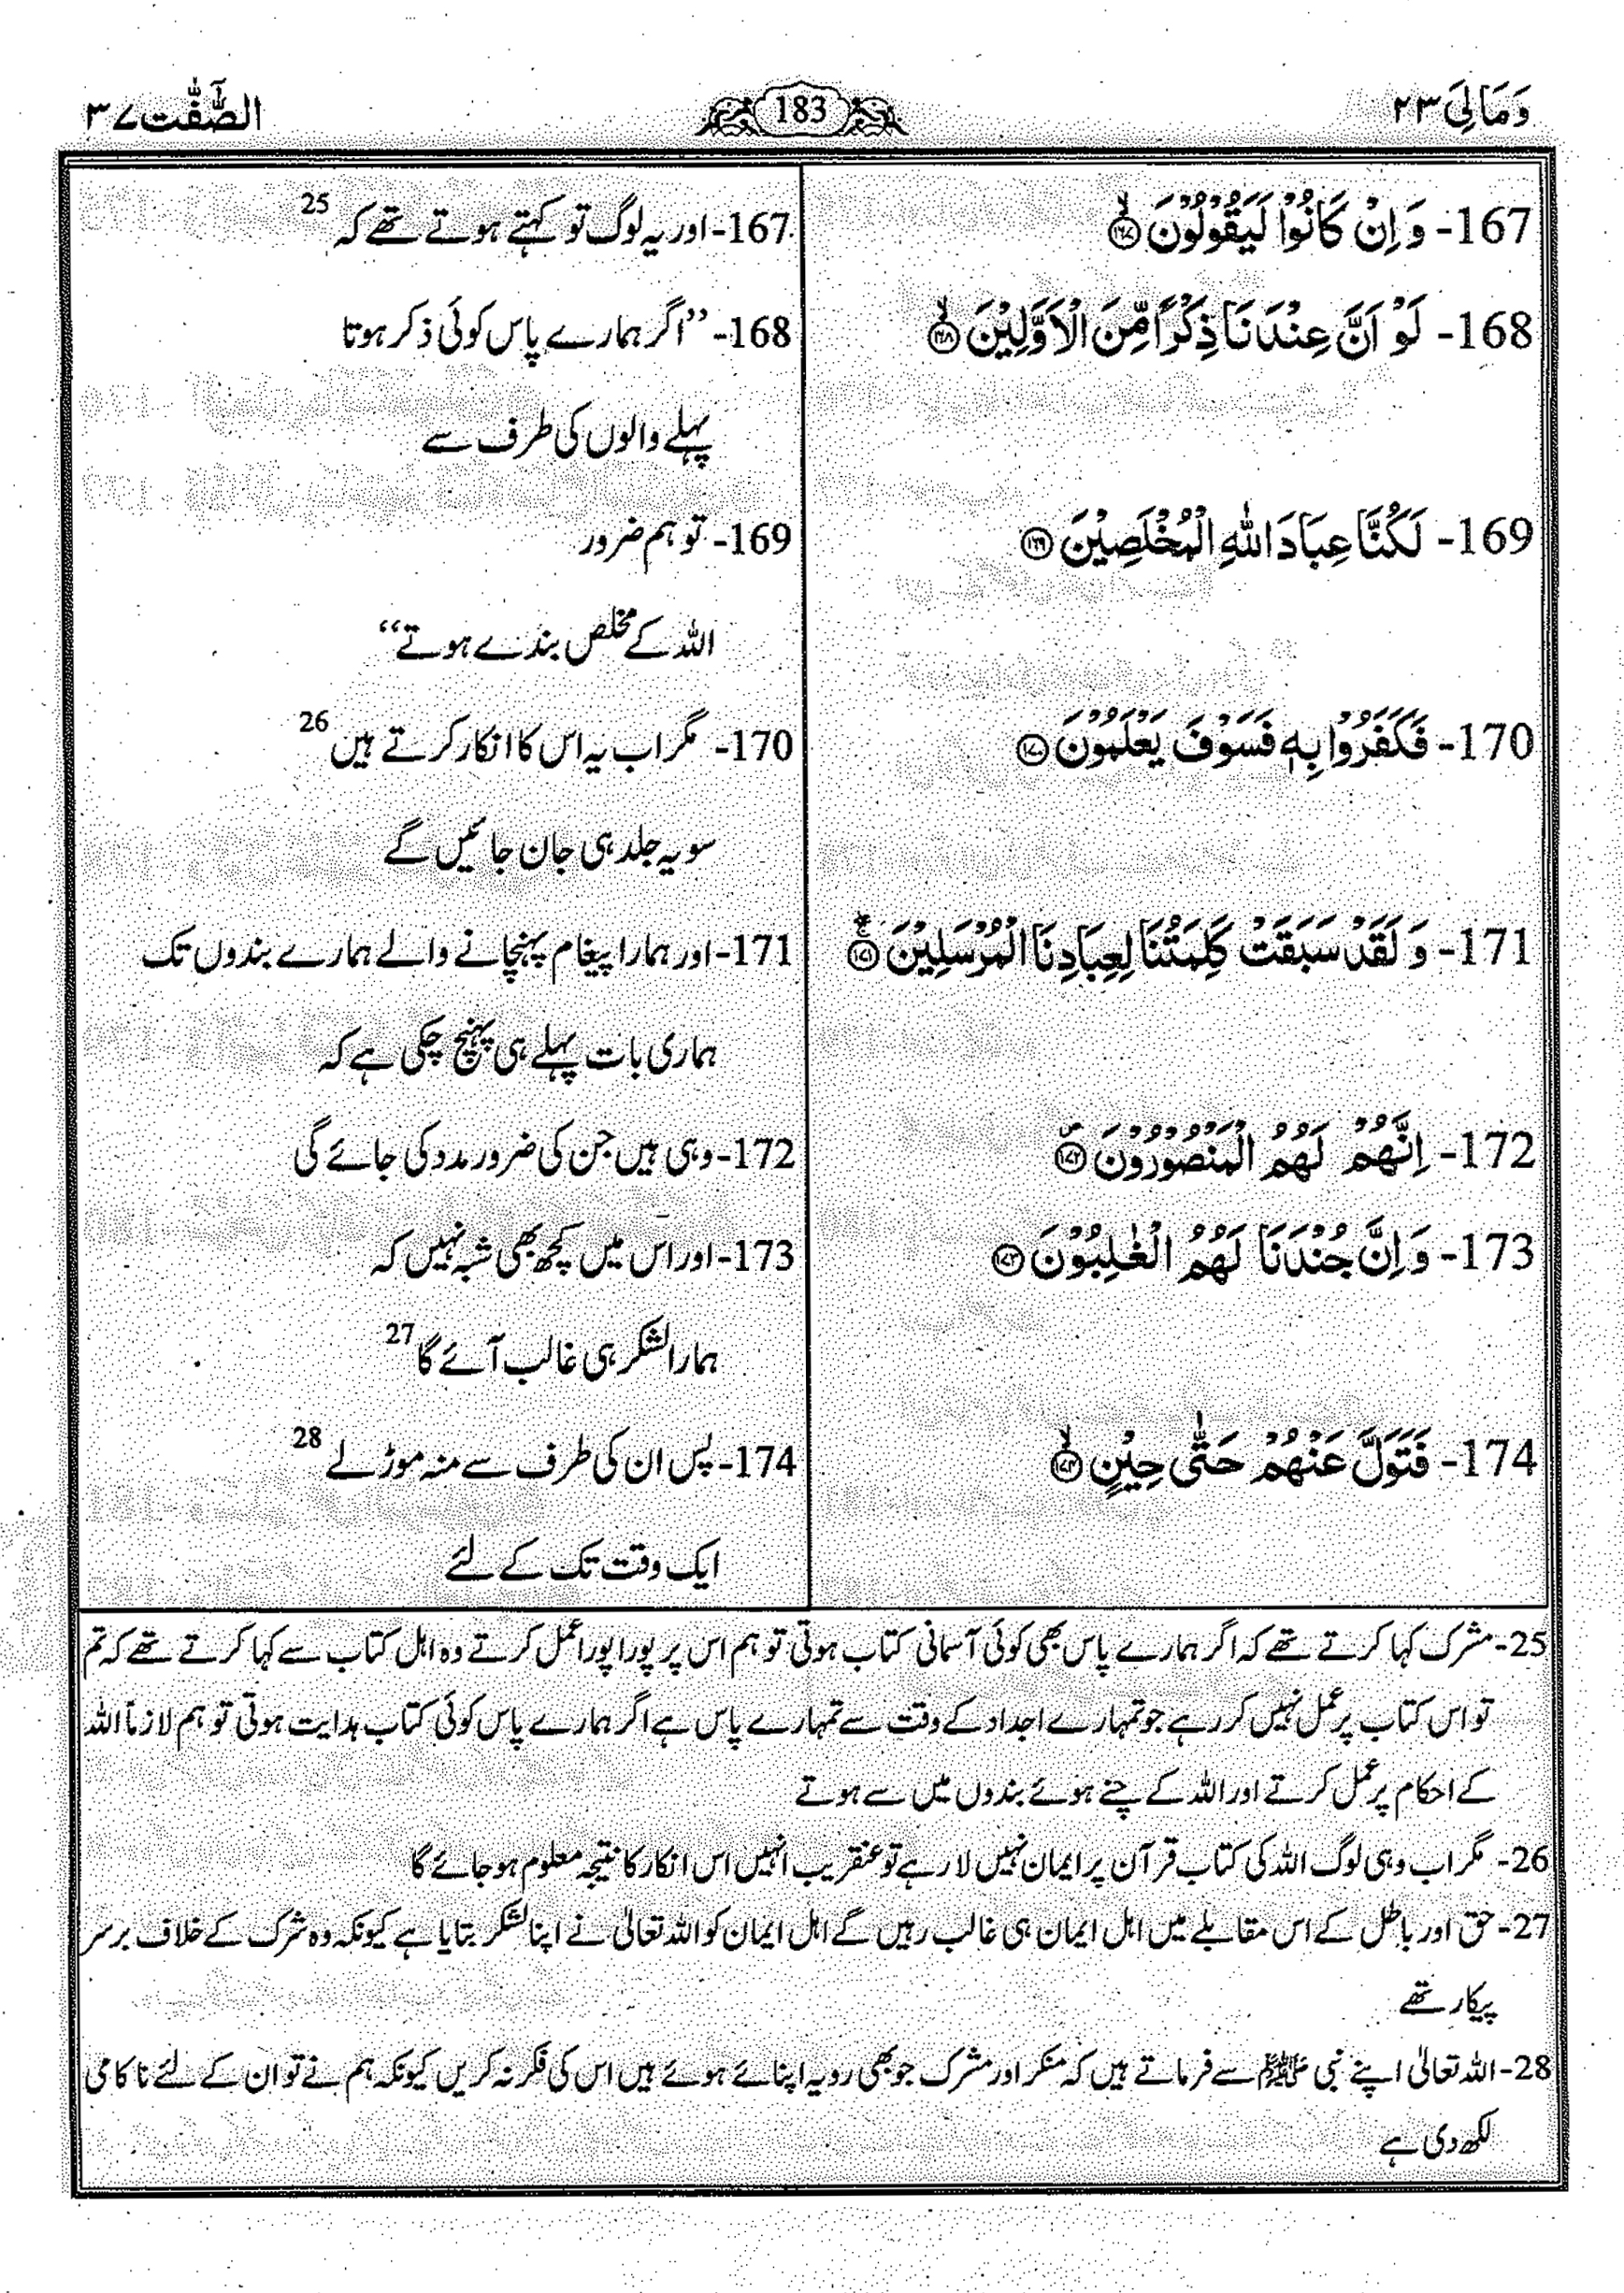 وَمَالِیَ ۲۳
183
الصّٰٓفّٰت ۳۷
167- وَ اِنْ كَانُوْا لَيَقُوْلُوْنَ ۙ‏﴿۱۶۷﴾
167- اور یہ لوگ تو کہتے ہوتے تھے کہ 25
168- لَوْ اَنَّ عِنْدَنَا ذِكْرًا مِّنَ الْاَوَّلِيْنَ ۙ‏﴿۱۶۸﴾
168- ’’اگر ہمارے پاس کوئی ذکر ہوتا
پہلے والوں کی طرف سے
169- لَكُنَّا عِبَادَ اللّٰهِ الْمُخْلَصِيْنَ ﴿۱۶۹﴾
169- تو ہم ضرور
اللہ کے مخلص بندے ہوتے‘‘
170- فَكَفَرُوْا بِهٖ فَسَوْفَ يَعْلَمُوْنَ ﴿۱۷۰﴾
170- مگر اب یہ اس کا انکار کرتے ہیں 26
سو یہ جلد ہی جان جائیں گے
171- وَ لَقَدْ سَبَقَتْ كَلِمَتُنَا لِعِبَادِنَا الْمُرْسَلِيْنَ ۚۖ‏﴿۱۷۱﴾
171- اور ہمارا پیغام پہنچانے والے ہمارے بندوں تک
ہماری بات پہلے ہی پہنچ چکی ہے کہ
172- اِنَّهُمْ لَهُمُ الْمَنْصُوْرُوْنَ ۪‏﴿۱۷۲﴾
172- وہی ہیں جن کی ضرور مدد کی جائے گی
173- وَ اِنَّ جُنْدَنَا لَهُمُ الْغٰلِبُوْنَ ﴿۱۷۳﴾
173- اور اس میں کچھ بھی شبہ نہیں کہ
ہمارا لشکر ہی غالب آئے گا 27
174- فَتَوَلَّ عَنْهُمْ حَتّٰى حِيْنٍ ۙ‏﴿۱۷۴﴾
174- پس ان کی طرف سے منہ موڑ لے 28
ایک وقت تک کے لئے
25- مشرک کہا کرتے تھے کہ اگر ہمارے پاس بھی کوئی آسمانی کتاب ہوتی تو ہم اس پر پورا پورا عمل کرتے وہ اہل کتاب سے کہا کرتے تھے کہ تم
تو اس کتاب پر عمل نہیں کر رہے جو تمہارے اجداد کے وقت سے تمہارے پاس ہے اگر ہمارے پاس کوئی کتاب ہدایت ہوتی تو ہم لازماً اللہ
کے احکام پر عمل کرتے اور اللہ کے چنے ہوئے بندوں میں سے ہوتے
26- مگر اب وہی لوگ اللہ کی کتاب قرآن پر ایمان نہیں لا رہے تو عنقریب انہیں اس انکار کا نتیجہ معلوم ہو جائے گا
27- حق اور باطل کے اس مقابلے میں اہل ایمان ہی غالب رہیں گے اہل ایمان کو اللہ تعالیٰ نے اپنا لشکر بتایا ہے کیونکہ وہ شرک کے خلاف برسر
پیکار تھے
28- اللہ تعالیٰ اپنے نبی ﷺ سے فرماتے ہیں کہ منکر اور مشرک جو بھی رویہ اپنائے ہوئے ہیں اس کی فکر نہ کریں کیونکہ ہم نے تو ان کے لئے ناکامی
لکھ دی ہے